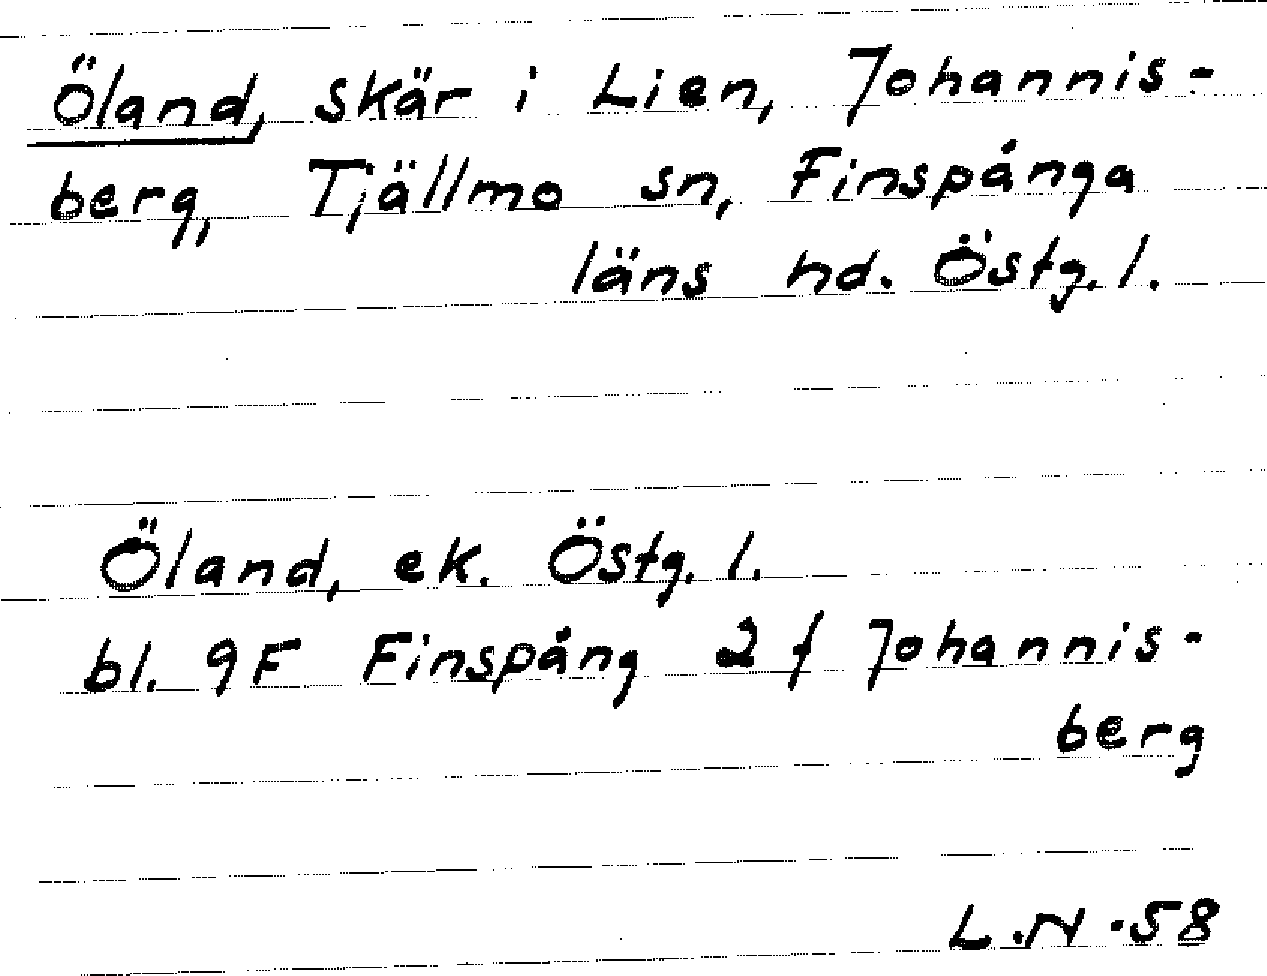 Öland, skär i Lien, Johannis-
berg, Tjällmo sn, Finspånga
läns hd. Östg. l.
Öland, ek. Östg. l.
bl. 9F Finspång 2 f Johannis-
berg
L.N.58